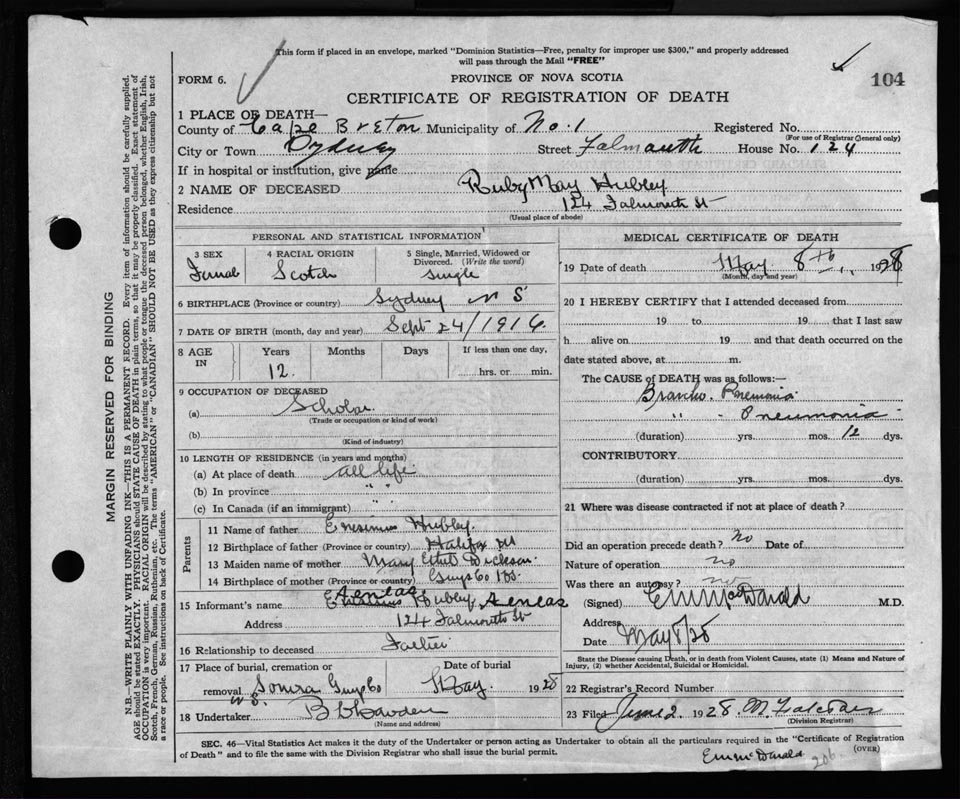 This form if placed in an envelope, marked "Dominion Statistics—Free, penalty for improper use $300," and properly addressed
will pass through the Mail "FREE"
FORM 6.
PROVINCE OF NOVA SCOTIA
104
CERTIFICATE OF REGISTRATION OF DEATH
1 PLACE OF DEATH—
County of Cape Breton Municipality of No. 1 Registered No.
(For use of Registrar General only)
City or Town Sydney Street Falmouth House No. 124
If in hospital or institution, give name
2 NAME OF DECEASED Ruby May Hubley
Residence 124 Falmouth St
(Usual place of abode)
PERSONAL AND STATISTICAL INFORMATION
3 SEX 4 RACIAL ORIGIN 5 Single, Married, Widowed or Divorced. (Write the word)
Femal Scotch Single
6 BIRTHPLACE (Province or country) Sydney N S
7 DATE OF BIRTH (month, day and year) Sept 24/1916.
8 AGE IN Years Months Days If less than one day,
12. hrs. or min.
9 OCCUPATION OF DECEASED
(a) Scholar
(Trade or occupation or kind of work)
(b)
(Kind of industry)
10 LENGTH OF RESIDENCE (in years and months)
(a) At place of death all life
(b) In province " "
(c) In Canada (if an immigrant) " "
Parents
11 Name of father Hubley
12 Birthplace of father (Province or country) Halifax NS
13 Maiden name of mother Mary Ethel Dickson
14 Birthplace of mother (Province or country) Guys Co NS.
Aeneas
15 Informant's name Hubley, Aeneas
Address 124 Falmouth St
16 Relationship to deceased Father
17 Place of burial, cremation or Date of burial
removal Guys Co May 1928
N S.
18 Undertaker
(Name and address)
MEDICAL CERTIFICATE OF DEATH
19 Date of death May 8th, 1928
(Month, day and year)
20 I HEREBY CERTIFY that I attended deceased from
19 to 19 that I last saw
h alive on 19 and that death occurred on the
date stated above, at m.
The CAUSE of DEATH was as follows:—
Broncho. Pnemonia
" - Pneumonia.
(duration) yrs. mos. 12 dys.
CONTRIBUTORY
(duration) yrs. mos. dys.
21 Where was disease contracted if not at place of death?
Did an operation precede death? no Date of
Nature of operation no
Was there an autopsy? no
(Signed) E M McDonald M.D.
Address
Date May 8/28
State the Disease causing Death, or in death from Violent Causes, state (1) Means and Nature of
Injury, (2) whether Accidental, Suicidal or Homicidal.
22 Registrar's Record Number
23 Filed June 2. 1928. M.
(Division Registrar)
SEC. 46—Vital Statistics Act makes it the duty of the Undertaker or person acting as Undertaker to obtain all the particulars required in the "Certificate of Registration
of Death" and to file the same with the Division Registrar who shall issue the burial permit.
(OVER)
E M McDonald 206
MARGIN RESERVED FOR BINDING
N.B.—WRITE PLAINLY WITH UNFADING INK—THIS IS A PERMANENT RECORD. Every item of information should be carefully supplied.
AGE should be stated EXACTLY. PHYSICIANS should STATE CAUSE OF DEATH in plain terms, so that it may be properly classified. Exact statement of
OCCUPATION is very important. RACIAL ORIGIN will be described by stating to what people or tongue the deceased person belonged, whether English, Irish,
Scotch, French, German, Russian, Ruthenian etc. The terms "AMERICAN" or "CANADIAN" SHOULD NOT BE USED as they express citizenship but not
a race or people. See instructions on back of Certificate.